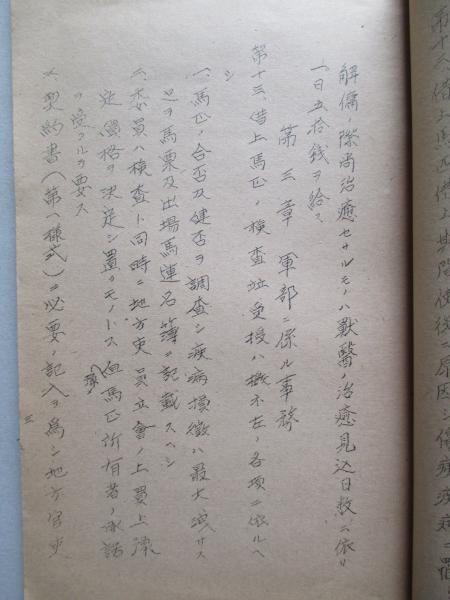 第十三、借上馬匹借上期間使役ニ原因シ傷痍疾病ニ罹
解傭ノ際尚治癒セサルモノハ獣醫ノ治癒見込日数ニ依リ
一日五拾銭ヲ給ス
第三章 軍部ニ係ル事務
第十三、借上馬匹ノ検査竝受授ハ概ネ左ノ各項ニ依ルヘ
シ
一、馬匹ノ合否及健否ヲ調査シ疾病損徴ハ最大洩サス
之ヲ馬票及出場馬連名簿ニ記載スヘシ
二、委員ハ検査ト同時ニ地方吏員立會ノ上買上豫
定價格ヲ決定シ置クモノトス但馬匹所有者ノ承諾
ヲ受クルヲ要ス
三、契約書(第八様式)ニ必要ノ記入ヲ為シ地方官吏
三